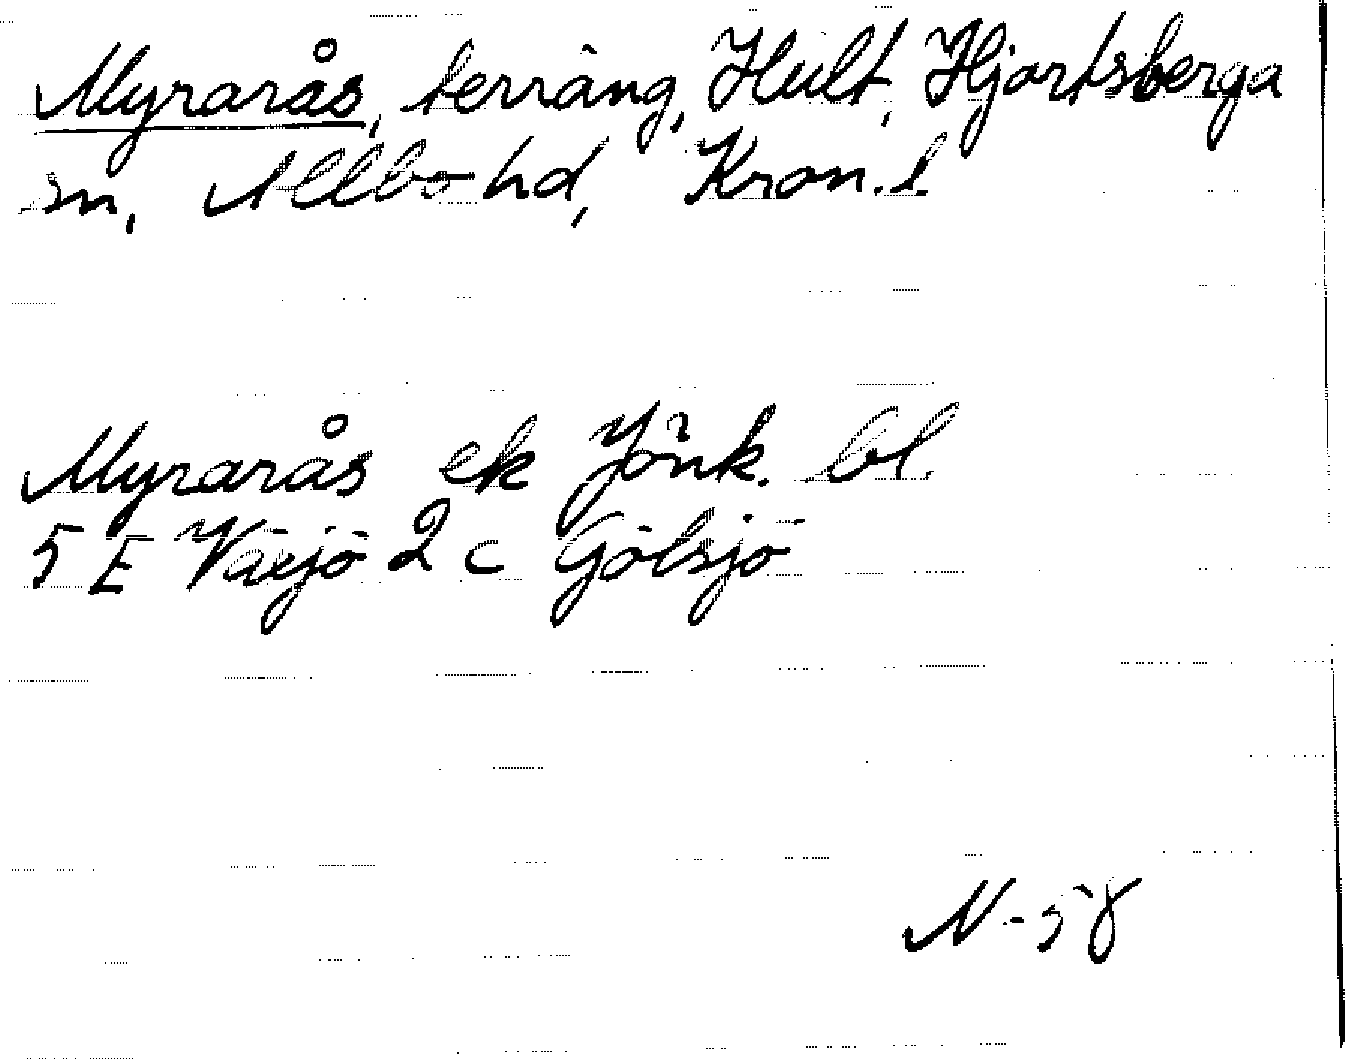 Myrarås, terräng, Hult, Hjortsberga
sn, Allbo hd, Kron. l.
Myrarås ek Jönk. bl.
5 E Växjö 2 c Gölsjö
N-58